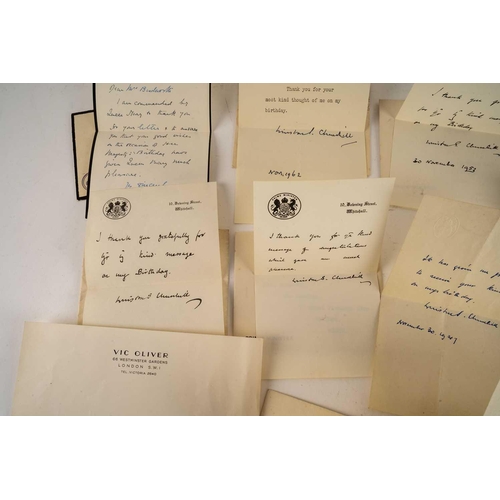 Dear Mrs
I am commanded by
Queen Mary to thank you
for your letter & to assure
you that your good wishes
on the occasion of Her
Majesty's Birthday have
given Queen Mary much
pleasure.
Thank you for your
most kind thought of me on my
birthday.
Winston S. Churchill
Nov. 1962
I thank you
for yr kind
on my Birthday
Winston S. Churchill
30 November 1953
10, Downing Street,
Whitehall.
I thank you gratefully for
yr kind message
on my Birthday.
Winston S. Churchill
10, Downing Street,
Whitehall.
I thank you for yr kind
message of congratulations
which gave me much
pleasure
Winston S. Churchill
It has given me
to receive your kind
on my birthday.
Winston S. Churchill
November 30, 1947
VIC OLIVER
WESTMINSTER GARDENS
LONDON S.W.1
TEL VICTORIA